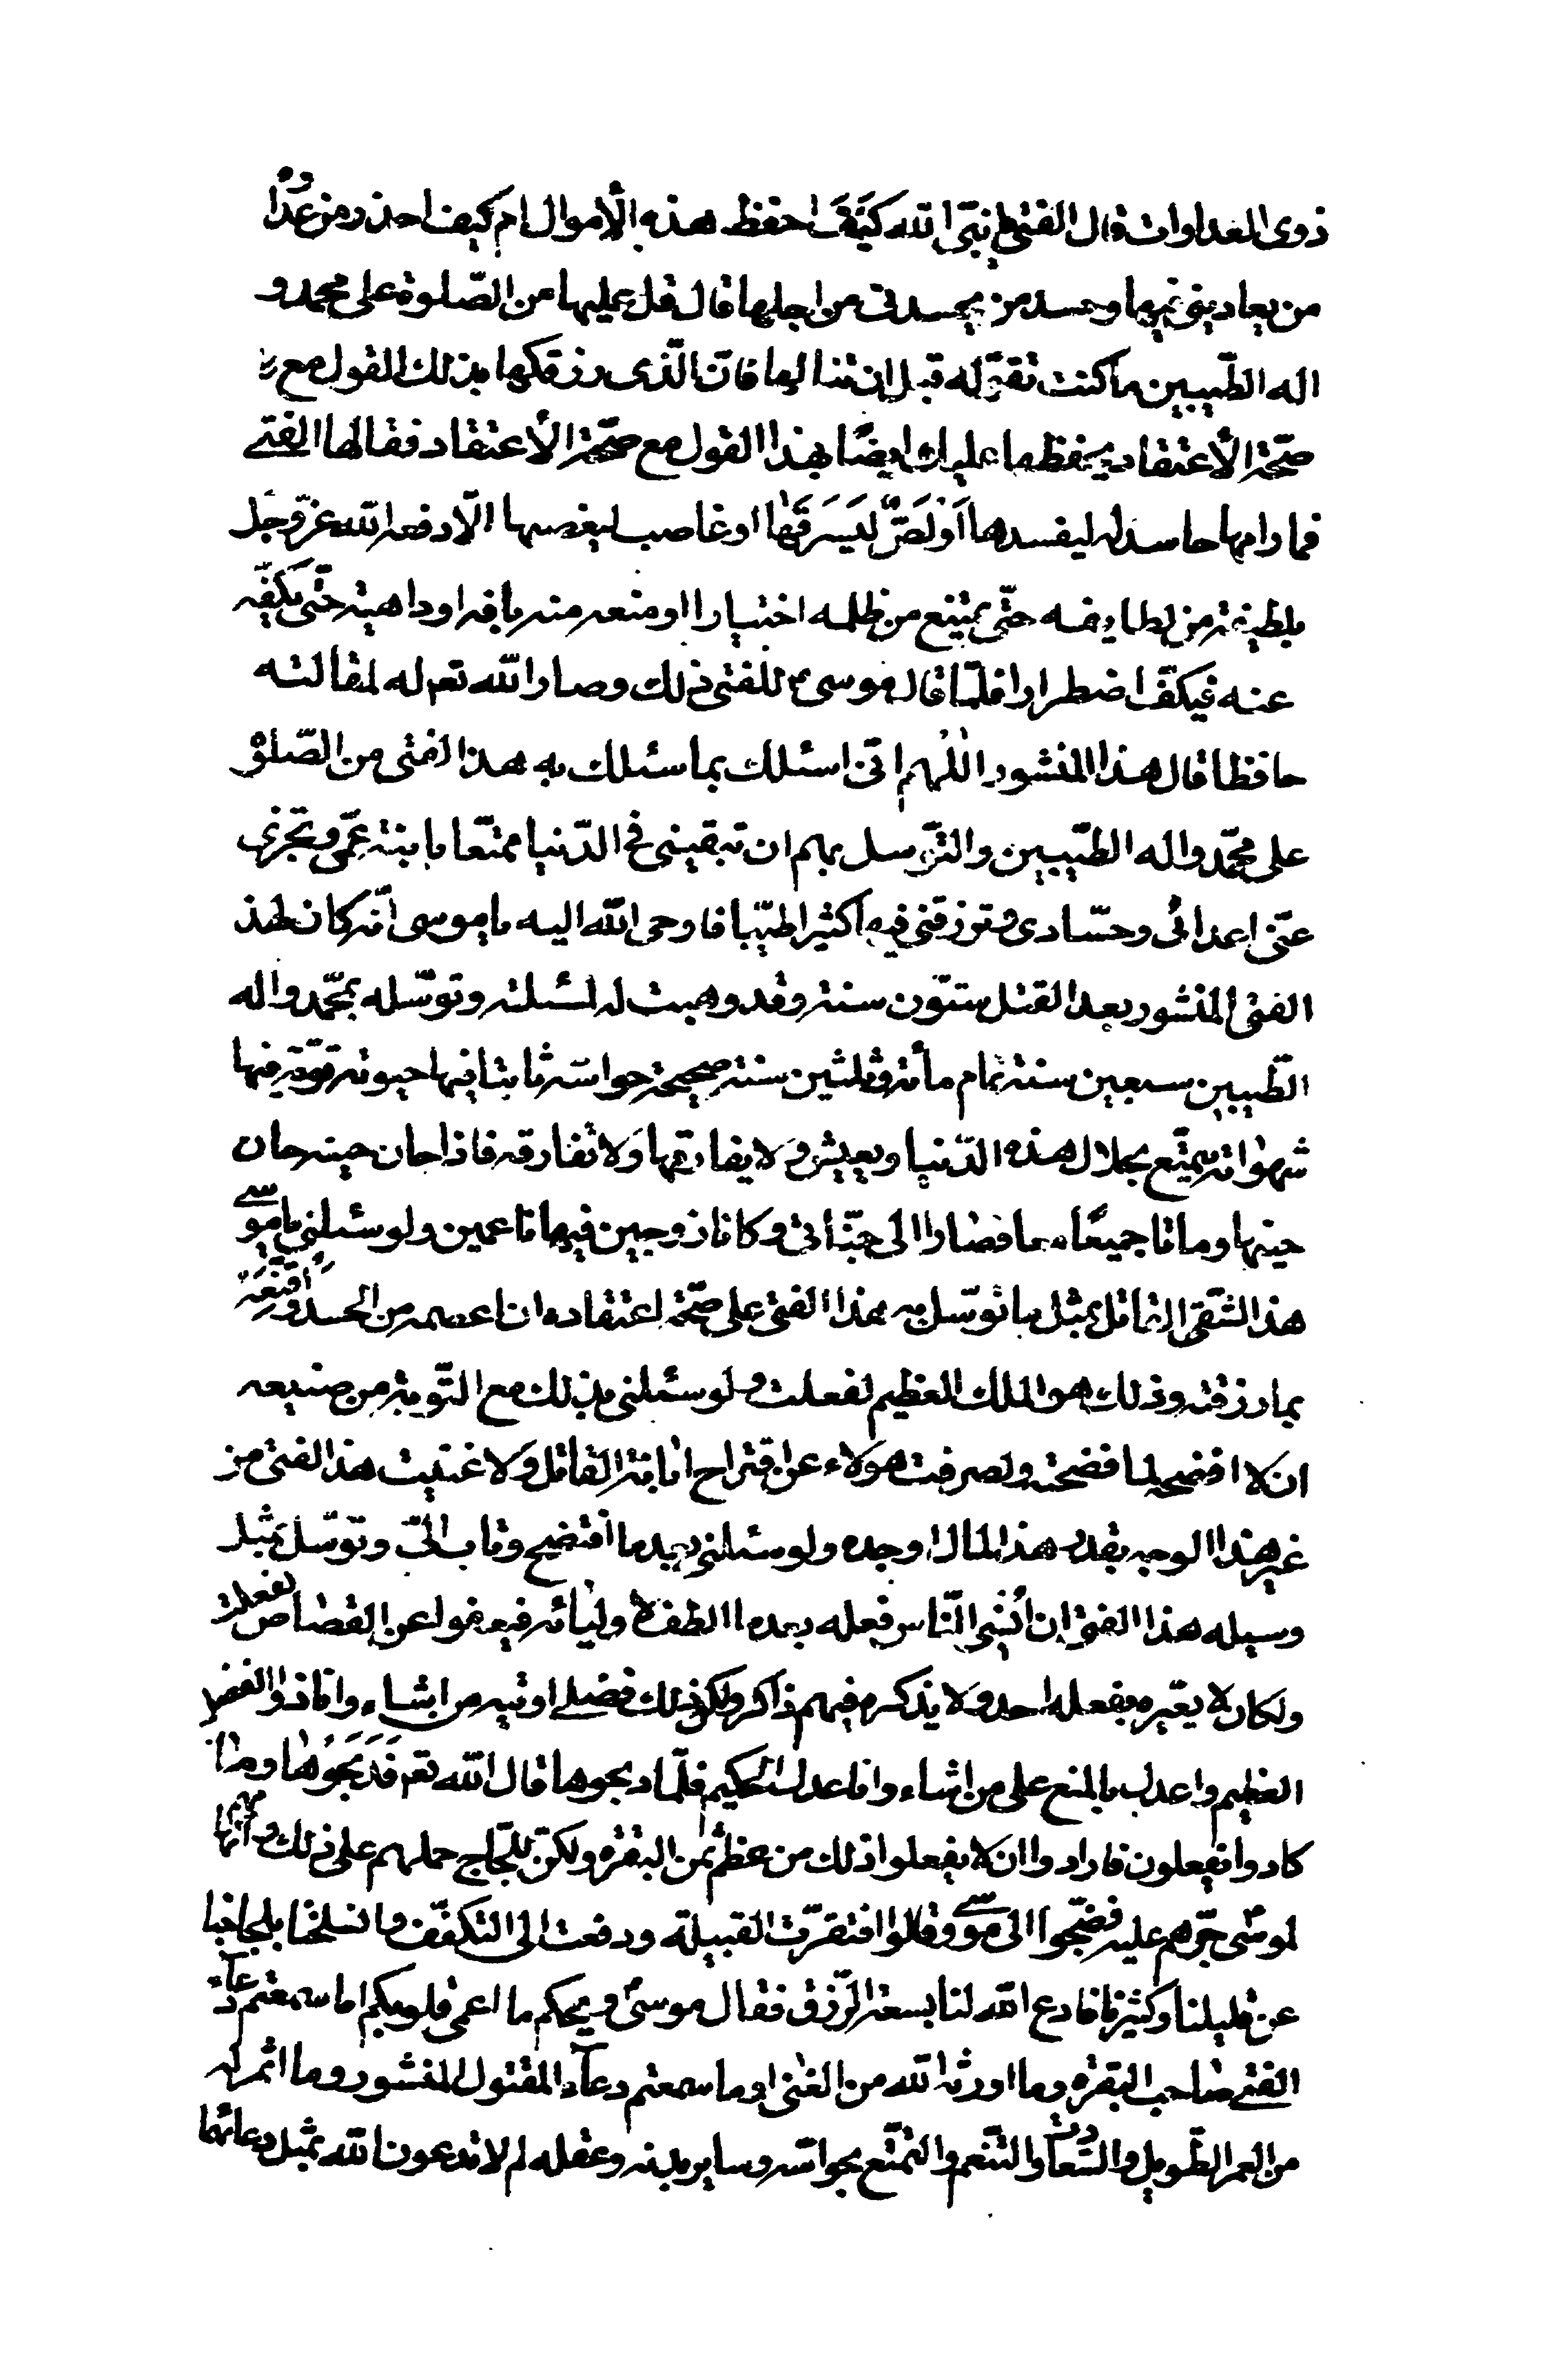 ذوى المعداوات فقال الفتى يا نبىّ الله كَيْفَ احفظ هذه الأموال ام كيف احذر من عداوة
من يعادينى فيها وحسد من يحسدنى من اجلها قال قل عليها من الصّلوة على محمد و
اله الطّيبين ما كنت تقوله قبل ان تنالها فانّ الّذى رزقكها بذلك القول مع
صحّة الأعتقاد يحفظها عليك ايضًا بهذا القول مع صحّة الأعتقاد فقالها الفتے
فما رامها حاسد له ليفسدها اَوْ لَصٌّ لِيَسرَقَهٰا او غاصب ليغصبها الّا دفعه الله عزّ وجلّ
بلطيفة من لطايفه حتّى يمتنع من ظلمه اختيارا او منعه منه بافة او داهية حتّى يكفّه
عنه فيكفّ اضطرارا فلمّا قال موسىؑ للفتى ذلك وصار الله تعه له لمقالته
حافظا قال هذا المنشور اللّٰهم انّى اسئلك بما سئلك به هذا الفتى من الصّلوة
على محمّد واله الطّيبين والتّوسل بهم ان تبقينى فى الدّنيا ممتّعا بابنة عمّى وتجزى
عنّى اعدائى وحسّادى وترزقنى فيها كثيرا طيّبا فاوحى الله اليه يا موسى انّه كان لهذا
الفتى المنشور بعد القتل ستّون سنة وقد وهبت له لمسئلته وتوسّله بمحّمد واله
الطّيبين سبعين سنة تمام مأئة وثلثين سنة صحيحة حواسّه ثابتا فيها حيوته قويّة فيها
شهواته يتمتّع بحلال هذه الدّنيا ويعيش ولا يفارقها وَلا تفارقه فاذا حان حينه حان
حينها وماتا جميعًا معا فصارا الى جنّاتى وكانا زوجين فيها ناعمين ولو سئلنى يا موسے
هذا الشّقى القاتل بمثل ما توسّل به هذا الفتى على صحّة اعتقاده ان اعصمه من الحسد واقنعه
بما رزقته وذلك هو الملك العظيم لفعلت ولو سئلنى بذلك مع التّوبة من صنيعه
ان لا افضحه لما فضحته ولصرفت هؤلاء عن اقتراح ابانة القاتل وَلاغنيت هذا الفتى من
غير هذا الوجه بقدر هذا المال اوجده ولو سئلنى بعد ما افتضح وتاب الىّ وتوسّل بمثل
وسيله هذا الفتى ان اُنسِى النّاس فعله بعد ما الطف لاوليائه فيعفوا عن القصاص لفعلت
ولكان لا يعيّره بفعله احد ولا يذكره فيهم ذاكر ولكن ذلك فضلے اوتيه من اشاء وانا ذو الفضل
العظيم واعدل بالمنع على من اشاء وانا عدل الحكيم فلمّا ذبحوها قال الله تعه فَذَبَحُوها وما
كادوا يفعلون فارادوا ان لا يفعلوا ذلك من عظم ثمن البقرة ولكنّ للّجاج حملهم على ذلك واتّهامهم
لموسٰى جرّهم عليه فضجّوا الى موسےؑ وقالوا افتقرّت القبيلة ودفعت الى التكفّف وانسلخنا بلجاجنا
عن قليلنا وكثيرنا فادع الله لنا بسعة الرّزق فقال موسىؑ ويحكم ما اعمى قلوبكم اما سمعتم دعآء
الفتے صاحب البقرة وما اورثه الله من الغنى اوما سمعتم دعآء المقتول المنشور وما اثمر له
من العمر الطّويل والسّعادة والتّنعم والتّمتّع بحواسّه وساير بدنه وعقله لم لا تدعون الله بمثل دعائهما